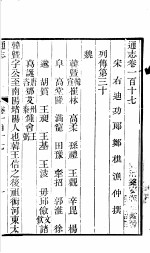 通志卷一百十七
宋右迪功郎鄭樵漁仲撰
列傳第三十
魏
韓曁 崔林 高柔 孫禮 王觀 辛毗 楊
阜 高堂隆 滿寵 田豫 牽招 郭淮 徐
邈 胡質 王昶 王基 王淩 毌丘儉 諸
葛誕 鄧艾 鍾會
韓曁字公至南陽堵陽人也韓王信之後祖術河東太